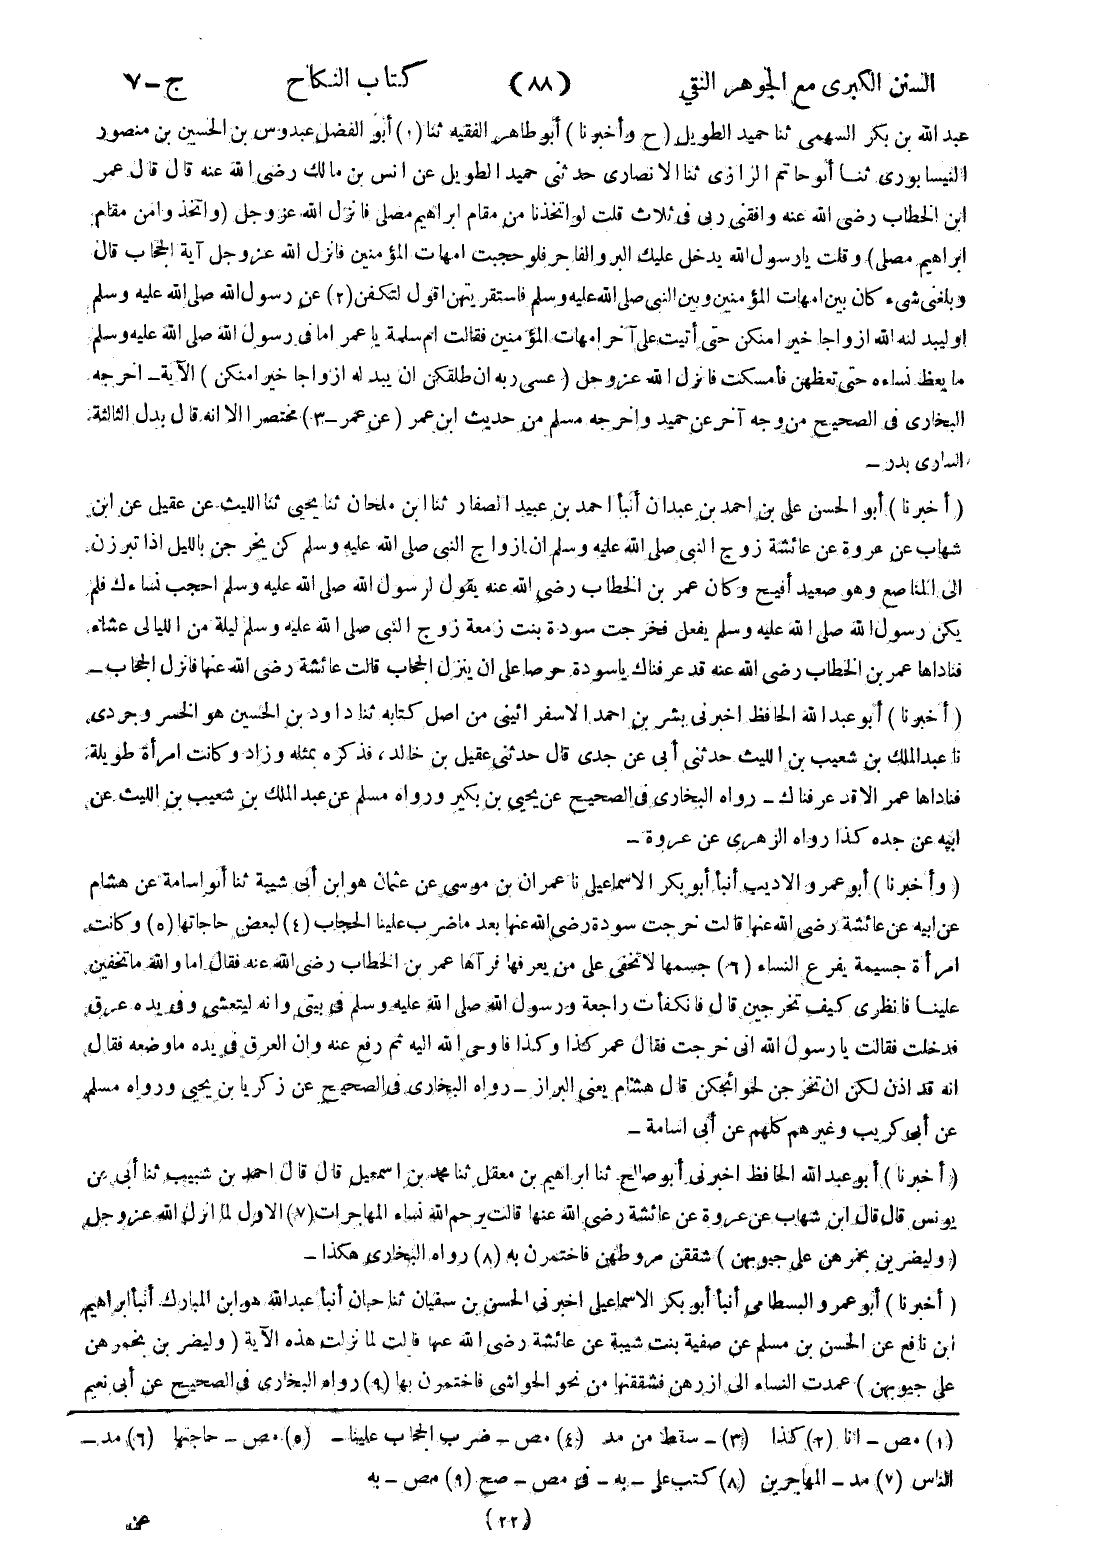 السنن الكبرى مع الجوهر النقي (٨٨) كتاب النكاح ج-٧
عبد الله بن بكر السهمى ثنا حميد الطويل (ح وأخبرنا) أبو طاهر الفقيه ثنا (١) أبو الفضل عبدوس بن الحسين بن منصور
النيسابورى ثنا أبو حاتم الرازى ثنا الانصارى حدثنى حميد الطويل عن انس بن مالك رضى الله عنه قال قال عمر
ابن الخطاب رضى الله عنه وافقنى ربى فى ثلاث قلت لو اتخذنا من مقام ابراهيم مصلى فانزل الله عزوجل (واتخذوا من مقام
ابراهيم مصلى) وقلت يارسول الله يدخل عليك البر والفاجر فلو حجبت امهات المؤمنين فانزل الله عزوجل آية الحجاب قال
وبلغنى شىء كان بين امهات المؤمنين وبين النبى صلى الله عليه وسلم فاستقريتهن اقول لتكفن (٢) عن رسول الله صلى الله عليه وسلم
اوليبدلنه الله ازواجا خيرا منكن حتى أتيت على آخر امهات المؤمنين فقالت ام سلمة يا عمر اما فى رسول الله صلى الله عليه وسلم
ما يعظ نساءه حتى تعظهن فأمسكت فانزل الله عزوجل (عسى ربه ان طلقكن ان يبدله ازواجا خيرا منكن) الآية ــ اخرجه
البخارى فى الصحيح من وجه آخر عن حميد واخرجه مسلم من حديث ابن عمر (عن عمر ــ٣) مختصرا الا انه قال بدل الثالثة
اسارى بدر ــ
(أخبرنا) أبو الحسن على بن احمد بن عبدان أنبأ احمد بن عبيد الصفار ثنا ابن ملحان ثنا يحيى ثنا الليث عن عقيل عن ابن
شهاب عن عروة عن عائشة زوج النبى صلى الله عليه وسلم ان ازواج النبى صلى الله عليه وسلم كن يخرجن بالليل اذا تبرزن
الى المناصع وهو صعيد أفيح وكان عمر بن الخطاب رضى الله عنه يقول لرسول الله صلى الله عليه وسلم احجب نساءك فلم
يكن رسول الله صلى الله عليه وسلم يفعل فخرجت سودة بنت زمعة زوج النبى صلى الله عليه وسلم ليلة من الليالى عشاء
فناداها عمر بن الخطاب رضى الله عنه قد عرفناك ياسودة حرصا على ان ينزل الحجاب قالت عائشة رضى الله عنها فانزل الحجاب ــ
(أخبرنا) أبو عبد الله الحافظ اخبرنى بشر بن احمد الاسفرائينى من اصل كتابه ثنا داود بن الحسين هو الخسروجردى
نا عبد الملك بن شعيب بن الليث حدثنى أبى عن جدى قال حدثنى عقيل بن خالد، فذكره بمثله وزاد وكانت امرأة طويلة
فناداها عمر الا قد عرفناك ــ رواه البخارى فى الصحيح عن يحيى بن بكير ورواه مسلم عن عبد الملك بن شعيب بن الليث عن
ابيه عن جده كذا رواه الزهرى عن عروة ــ
(وأخبرنا) أبو عمرو الاديب أنبأ أبو بكر الاسماعيلى نا عمران بن موسى عن عثمان هو ابن أبى شيبة ثنا أبو اسامة عن هشام
عن ابيه عن عائشة رضى الله عنها قالت خرجت سودة رضى الله عنها بعد ماضرب علينا الحجاب (٤) لبعض حاجاتها (٥) وكانت
امرأة جسيمة يفرع النساء (٦) جسمها لا تخفى على من يعرفها فرآها عمر بن الخطاب رضى الله عنه فقال اما والله ما تخفين
علينا فانظرى كيف تخرجين قال فانكفأت راجعة ورسول الله صلى الله عليه وسلم فى بيتى وانه ليتعشى وفى يده عرق
فدخلت فقالت يارسول الله انى خرجت فقال عمر كذا وكذا فاوحى الله اليه ثم رفع عنه وان العرق فى يده ماوضعه فقال
انه قد اذن لكن ان تخرجن لحوائجكن قال هشام يعنى البراز ــ رواه البخارى فى الصحيح عن زكريا بن يحيى ورواه مسلم
عن أبى كريب وغيرهم كلهم عن أبى اسامة ــ
(أخبرنا) أبو عبد الله الحافظ اخبرنى أبو صالح ثنا ابراهيم بن معقل ثنا محمد بن اسمعيل قال قال احمد بن شبيب ثنا أبى عن
يونس قال قال ابن شهاب عن عروة عن عائشة رضى الله عنها قالت يرحم الله نساء المهاجرات (٧) الاول لما انزل الله عزوجل
(وليضربن بخمرهن على جيوبهن) شققن مروطهن فاختمرن به (٨) رواه البخارى هكذا ــ
(أخبرنا) أبو عمرو البسطامى أنبأ أبو بكر الاسماعيلى اخبرنى الحسن بن سفيان ثنا حبان أنبأ عبد الله هو ابن المبارك أنبأ ابراهيم
ابن نافع عن الحسن بن مسلم عن صفية بنت شيبة عن عائشة رضى الله عنها قالت لما نزلت هذه الآية (وليضربن بخمرهن
على جيوبهن) عمدت النساء الى ازرهن فشققنها من نحو الحواشى فاختمرن بها (٩) رواه البخارى فى الصحيح عن أبى نعيم
(١) مص ــ انا (٢) كذا (٣) ــ سقط من مد (٤) مص ــ ضرب الحجاب علينا ــ (٥) مص ــ حاجتها (٦) مد ــ
الناس (٧) مد ــ المهاجرين (٨) كتب على ــ به ــ فى مص ــ صح (٩) مص ــ به
(٢٢) عن